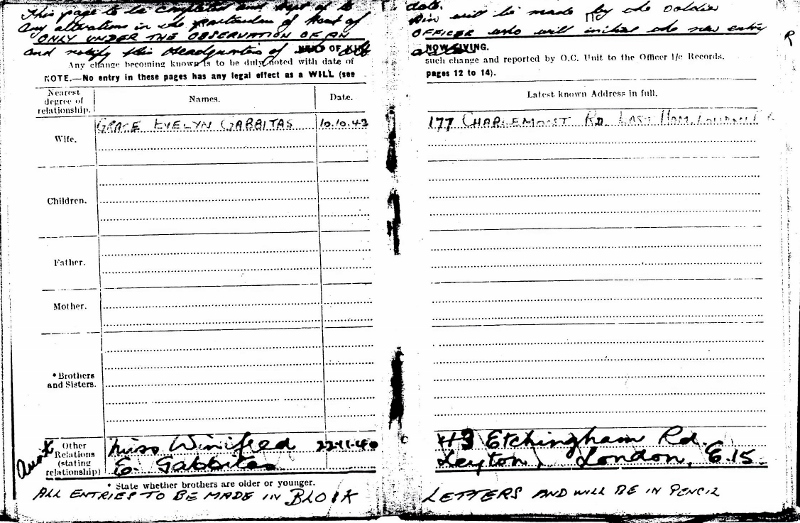 This page to be completed and kept up to
Any alterations in the particulars of next of
ONLY UNDER THE OBSERVATION OF AN
and notify this Headquarters of
Any change becoming known is to be duly noted with date of
NOTE.—No entry in these pages has any legal effect as a WILL (see
Nearest degree of relationship.
Names.
Date.
Wife.
GRACE EVELYN GABBITAS 10.10.42
Children.
Father.
Mother.
* Brothers and Sisters.
Aunt
Other Relations (stating relationship)
Miss Winifred 22-11-40
E. Gabbitas
* State whether brothers are older or younger.
ALL ENTRIES TO BE MADE IN BLOCK
date.
Kin will be made by the soldier
OFFICER who will initial the new entry
NOW LIVING.
such change and reported by O.C. Unit to the Officer i/c Records.
pages 12 to 14).
Latest known Address in full.
177 CHARLEMONT RD EAST HAM, LONDON E
43 Etchingham Rd.
Leyton, London, E.15.
LETTERS AND WILL BE IN PENCIL